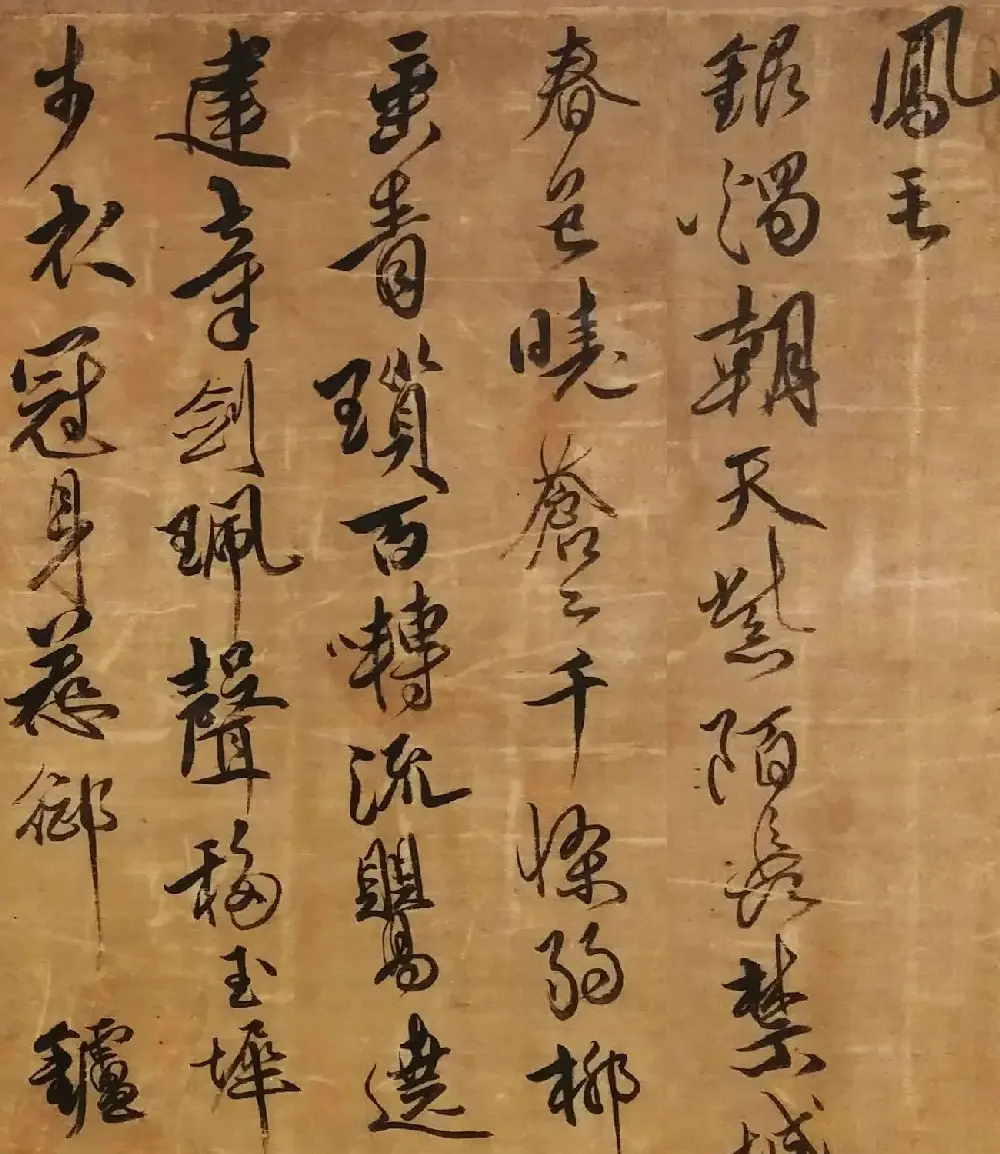 鳳毛
銀燭朝天紫陌長禁城
春色曉蒼〻千條弱柳
垂青瑣百囀流鶯遶
建章劍珮聲移玉墀
步衣冠身惹御鑪